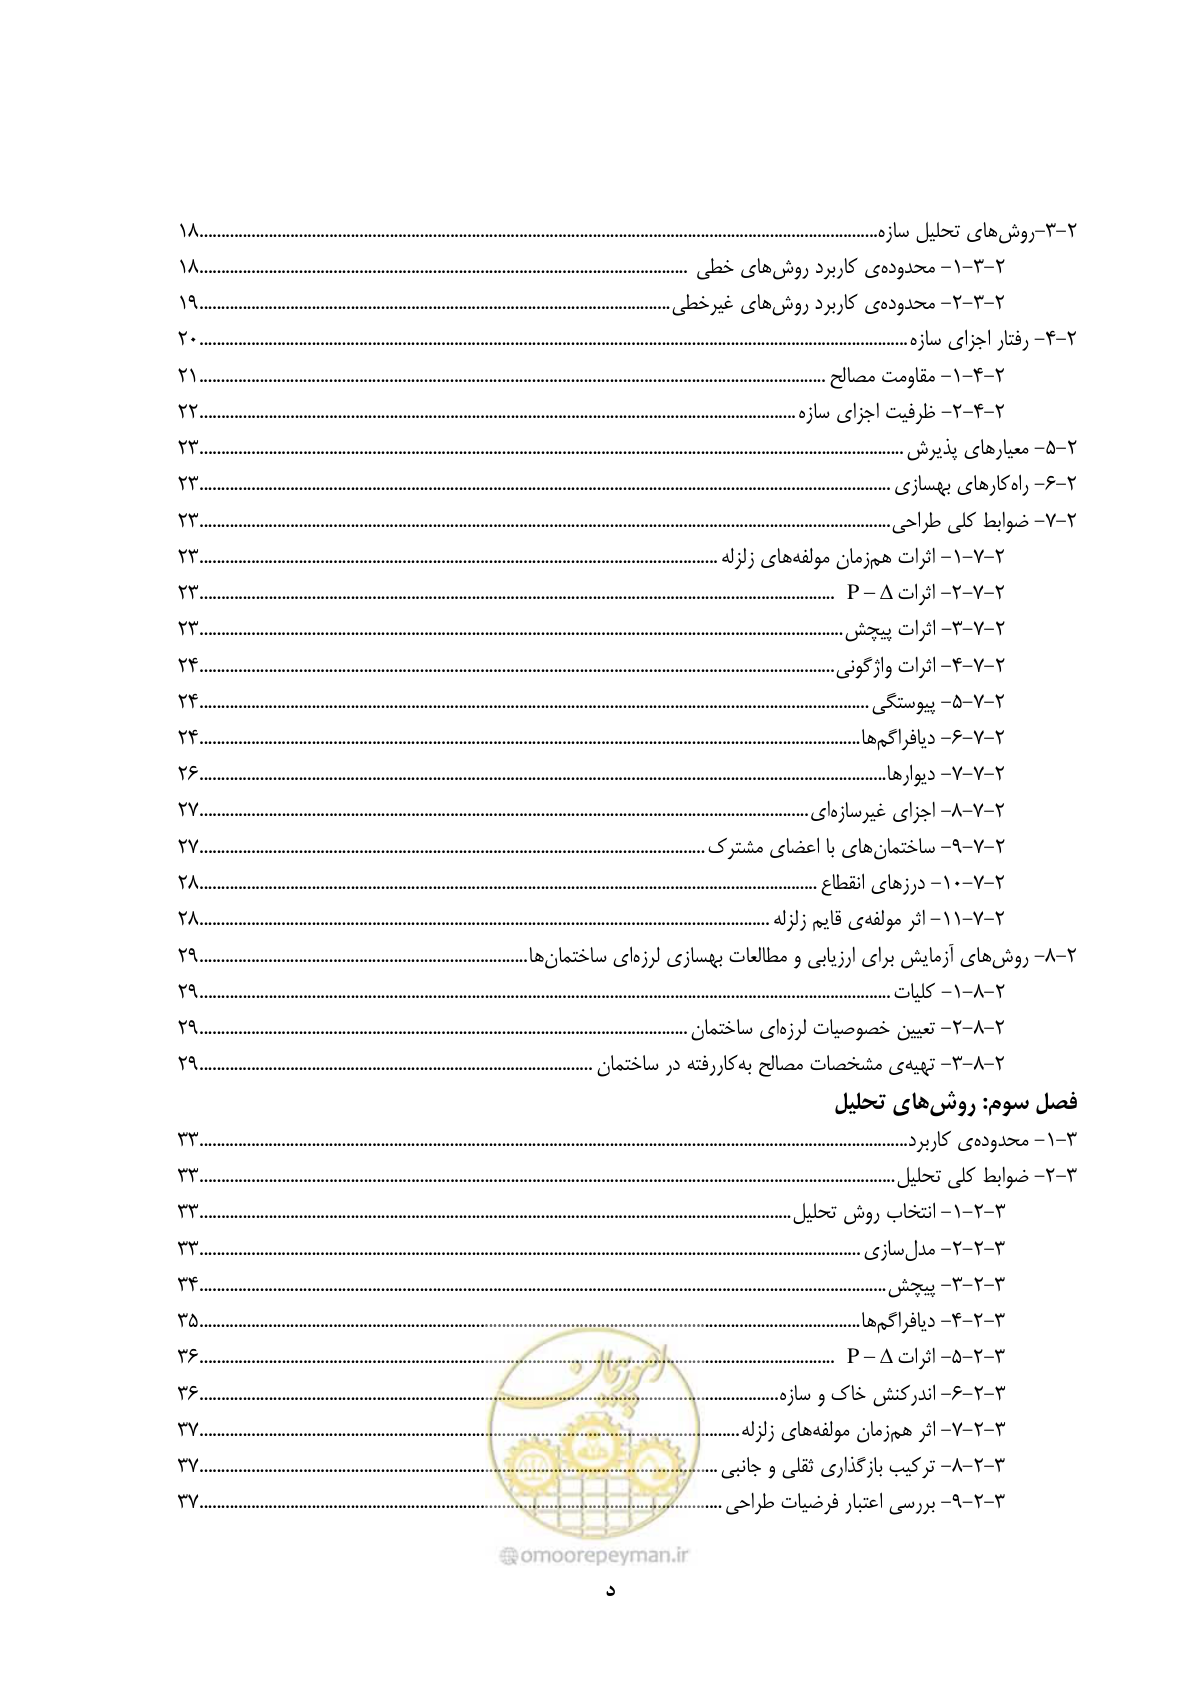 ۲-۳-روش‌های تحلیل سازه........................................۱۸
۲-۳-۱- محدوده‌ی کاربرد روش‌های خطی ........................................۱۸
۲-۳-۲- محدوده‌ی کاربرد روش‌های غیرخطی........................................۱۹
۲-۴- رفتار اجزای سازه........................................۲۰
۲-۴-۱- مقاومت مصالح ........................................۲۱
۲-۴-۲- ظرفیت اجزای سازه ........................................۲۲
۲-۵- معیارهای پذیرش ........................................۲۳
۲-۶- راه‌کارهای بهسازی ........................................۲۳
۲-۷- ضوابط کلی طراحی........................................۲۳
۲-۷-۱- اثرات هم‌زمان مولفه‌های زلزله ........................................۲۳
۲-۷-۲- اثرات P – Δ ........................................۲۳
۲-۷-۳- اثرات پیچش........................................۲۳
۲-۷-۴- اثرات واژگونی........................................۲۴
۲-۷-۵- پیوستگی ........................................۲۴
۲-۷-۶- دیافراگم‌ها........................................۲۴
۲-۷-۷- دیوارها........................................۲۶
۲-۷-۸- اجزای غیرسازه‌ای........................................۲۷
۲-۷-۹- ساختمان‌های با اعضای مشترک........................................۲۷
۲-۷-۱۰- درزهای انقطاع ........................................۲۸
۲-۷-۱۱- اثر مولفه‌ی قایم زلزله ........................................۲۸
۲-۸- روش‌های آزمایش برای ارزیابی و مطالعات بهسازی لرزه‌ای ساختمان‌ها........................................۲۹
۲-۸-۱- کلیات ........................................۲۹
۲-۸-۲- تعیین خصوصیات لرزه‌ای ساختمان ........................................۲۹
۲-۸-۳- تهیه‌ی مشخصات مصالح به‌کاررفته در ساختمان ........................................۲۹
فصل سوم: روش‌های تحلیل
۳-۱- محدوده‌ی کاربرد........................................۳۳
۳-۲- ضوابط کلی تحلیل........................................۳۳
۳-۲-۱- انتخاب روش تحلیل........................................۳۳
۳-۲-۲- مدل‌سازی ........................................۳۳
۳-۲-۳- پیچش........................................۳۴
۳-۲-۴- دیافراگم‌ها........................................۳۵
۳-۲-۵- اثرات P – Δ ........................................۳۶
۳-۲-۶- اندرکنش خاک و سازه........................................۳۶
۳-۲-۷- اثر هم‌زمان مولفه‌های زلزله........................................۳۷
۳-۲-۸- ترکیب بارگذاری ثقلی و جانبی ........................................۳۷
۳-۲-۹- بررسی اعتبار فرضیات طراحی ........................................۳۷
امور پیمان
@omoorepeyman.ir
د